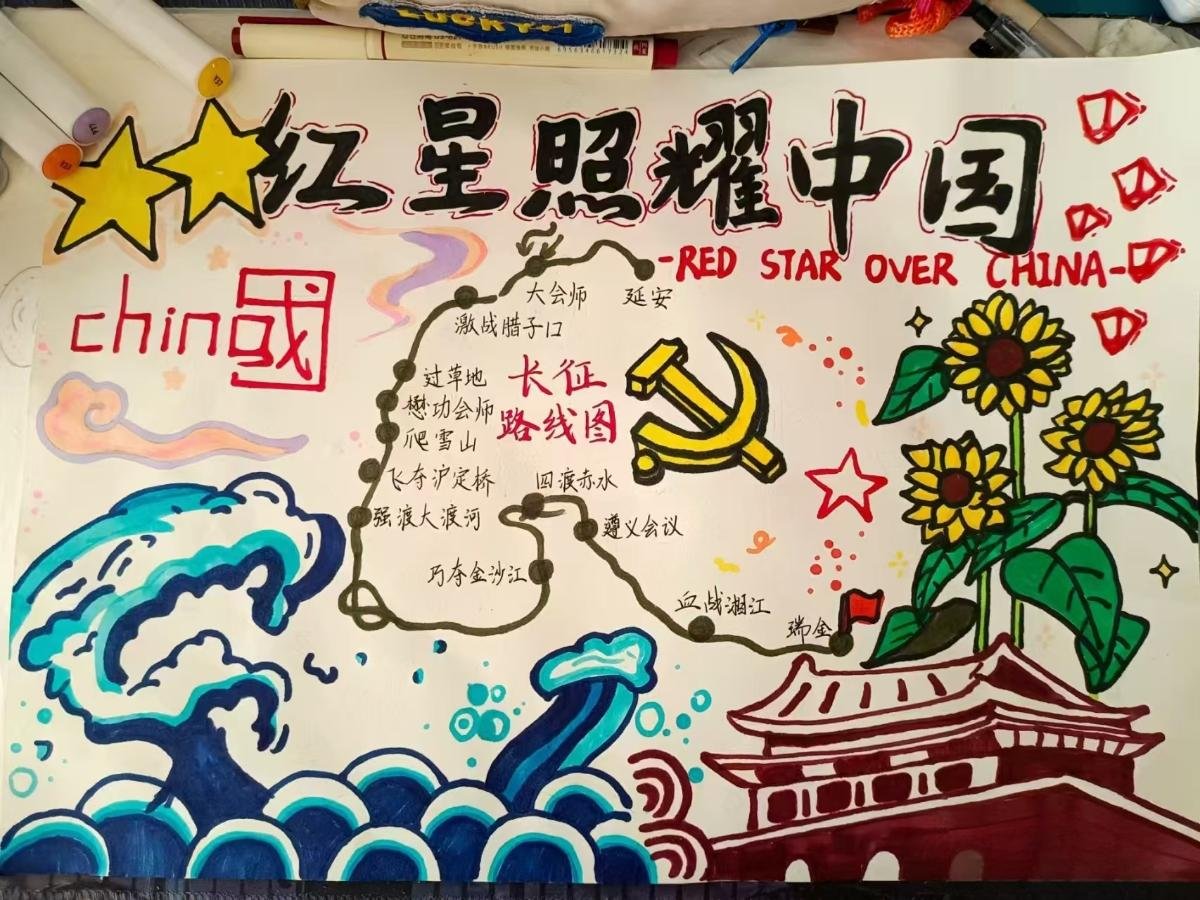 LUCKY
红星照耀中国
-RED STAR OVER CHINA-
china国
大会师
延安
激战腊子口
长征
路线图
过草地
懋功会师
爬雪山
飞夺沪定桥
四渡赤水
强渡大渡河
遵义会议
巧夺金沙江
血战湘江
瑞金